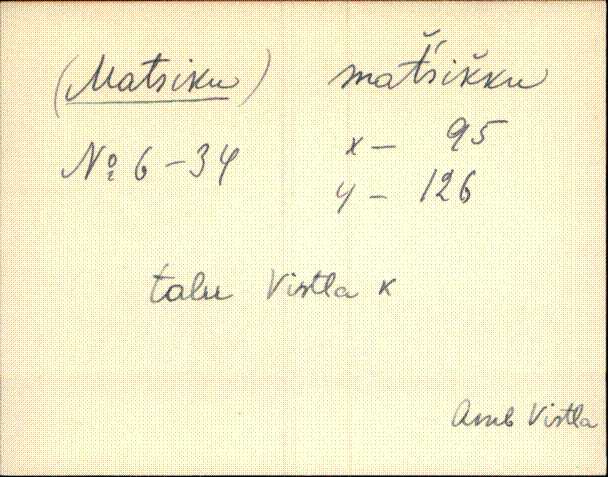 (Matsiku) mat̆́šikku
№ 6-34 x - 95
y - 126
talu Vistla k
Amb Vistla